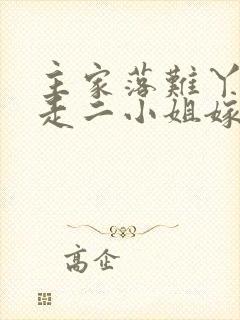 主家落難丫
走二小姐嫁
高企